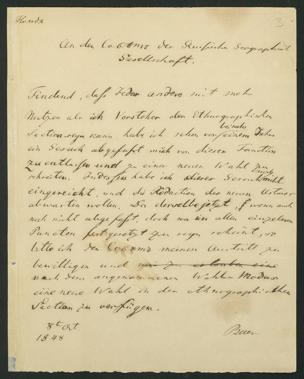 An den Conseil der Russische Geographische
Gesellschaft.
Findend, dass Jeder andere mit mehr
Nutzen als ich Vorsteher der Ethnographischen
Section seyn kann, habe ich schon vor
beinahe
einem Jahre
ein Gesuch abgefasst mich von dieser Function
zu entlassen und zu einer neuen Wahl zu
schreiten. Indessen habe ich dieses Gesuch nicht
eingereicht, und die Redaction der neuen Statuten
abwarten wollen. Da dieselbe jetzt, wenn auch
noch nicht abgefasst, doch in allen einzelnen
Puncten festgesetzt zu seyn scheint, so
bitte ich den Conseil meinen Austritt zu
bewilligen und
nach dem angenommenen Wahl-Modus
eine neue Wahl in der Ethnographischen
Section zu verfügen.
8 Oct
1848
Baer